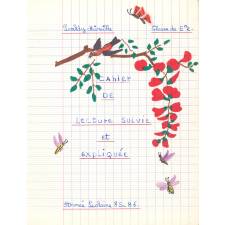 Classe de 5e2.
CAHIER
DE
LECTURE SUIVIE
et
EXPLIQUÉE
Année Scolaire 85-86.